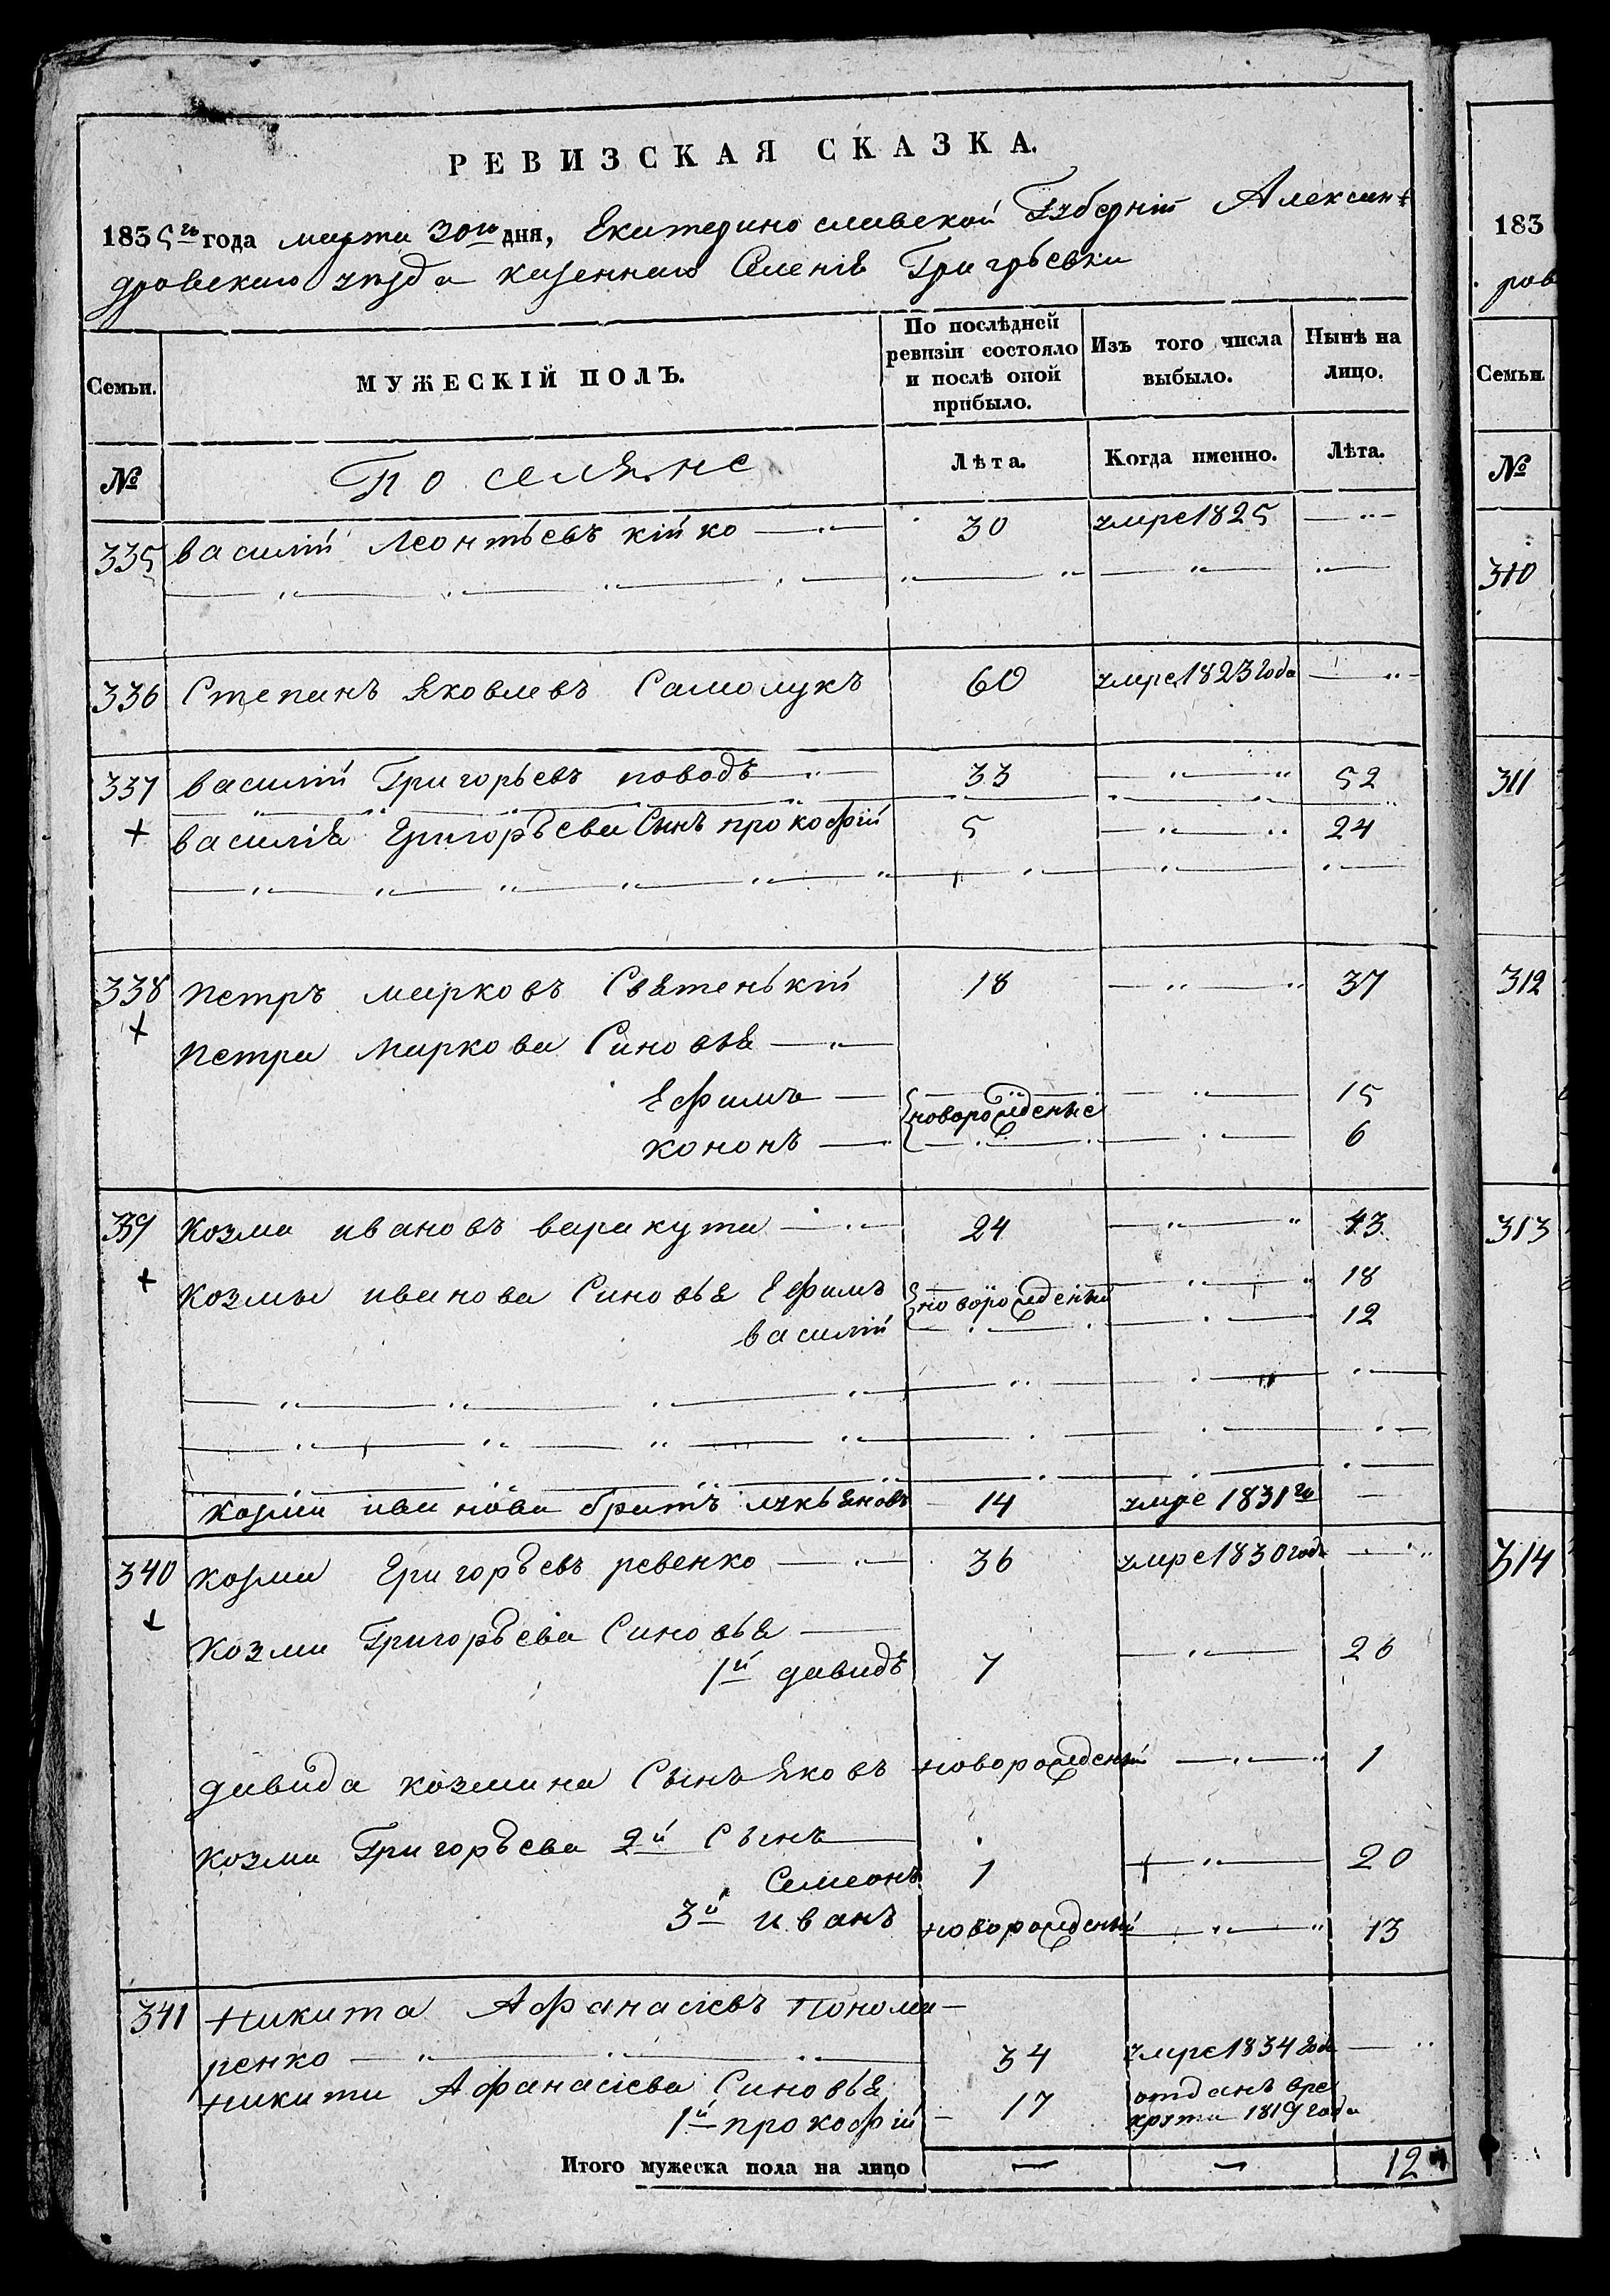 РЕВИЗСКАЯ СКАЗКА.
1835го года марта 30го дня, Екатеринославской Губерніи Алексан-
дровскаго уезда казеннаго Селенія Григорьевки
Семьи. МУЖЕСКІЙ ПОЛЪ. По послѣдней ревизіи состояло и послѣ оной прибыло. Изъ того числа выбыло. Нынѣ на лицо.
№ Поселяне Лѣта. Когда именно. Лѣта.
335 василій Леонтьевъ кійко 30 умре 1825
336 Степанъ Яковлевъ Самолукъ 60 умре 1823 года
337 василій Григорьевъ поводъ 33 52
+ василія Григорьева Сынъ прокофій 5 24
338 петръ марковъ Святенькій 18 37
+
петра Маркова Синовья
Ефимъ новорожденые 15
кононъ 6
339 Козма ивановъ варакута 24 43
+ Козмы иванова Синовья Ефимъ новорожденый 18
василій 12
козми иванова братъ лукьяновъ 14 умре 1831го
340 козми Григорьевъ ревенко 36 умре 1830 года
+
Козми Григорьева Синовья
1й давидъ 7 26
давида козмина Сынъ Яковъ новорожденый 1
козми Григорьева 2й Сынъ
Семеонъ 1 20
3й иванъ новорожденый 13
341 никита Афанасіевъ понома-
ренко 34 умре 1834 года
никити Афанасіева Синовья
1й прокофій 17 отданъ вре
круты 1819 года
Итого мужеска пола на лицо 12
183
ров
Семьи.
№
310
311
312
313
314